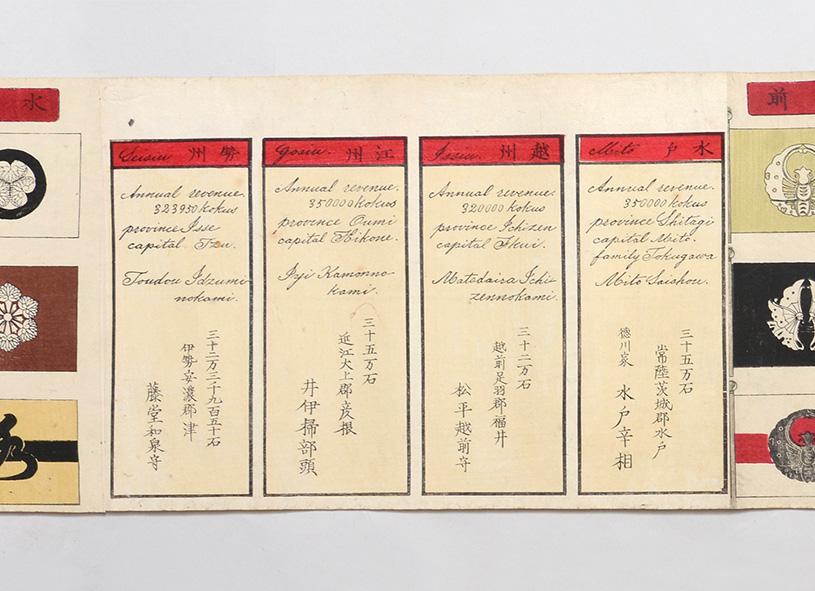 水
Susiu 勢州
Annual revenue.
323950 kokus
province Isse
capital Tzu.
Toudou Idzumi
nokami.
三十二万三千九百五十石
伊勢安濃郡 津
藤堂和泉守
Gosiu. 江州
Annual revenue.
350000 kokus
province Oumi
capital Hikone.
Iyi Kamonno
kami.
三十五万石
近江犬上郡彦根
井伊掃部頭
Issiu. 越州
Annual revenue.
320000 kokus
province Ichizen
capital Fkui.
Matsdaira Ichi-
zennokami.
三十二万石
越前足羽郡福井
松平越前守
Mito 水戸
Annual revenue.
350000 kokus
province Shitagi
capital Mito.
family Tokugawa
Mito Saishou.
三十五万石
常陸茨城郡水戸
徳川家 水戸宰相
前